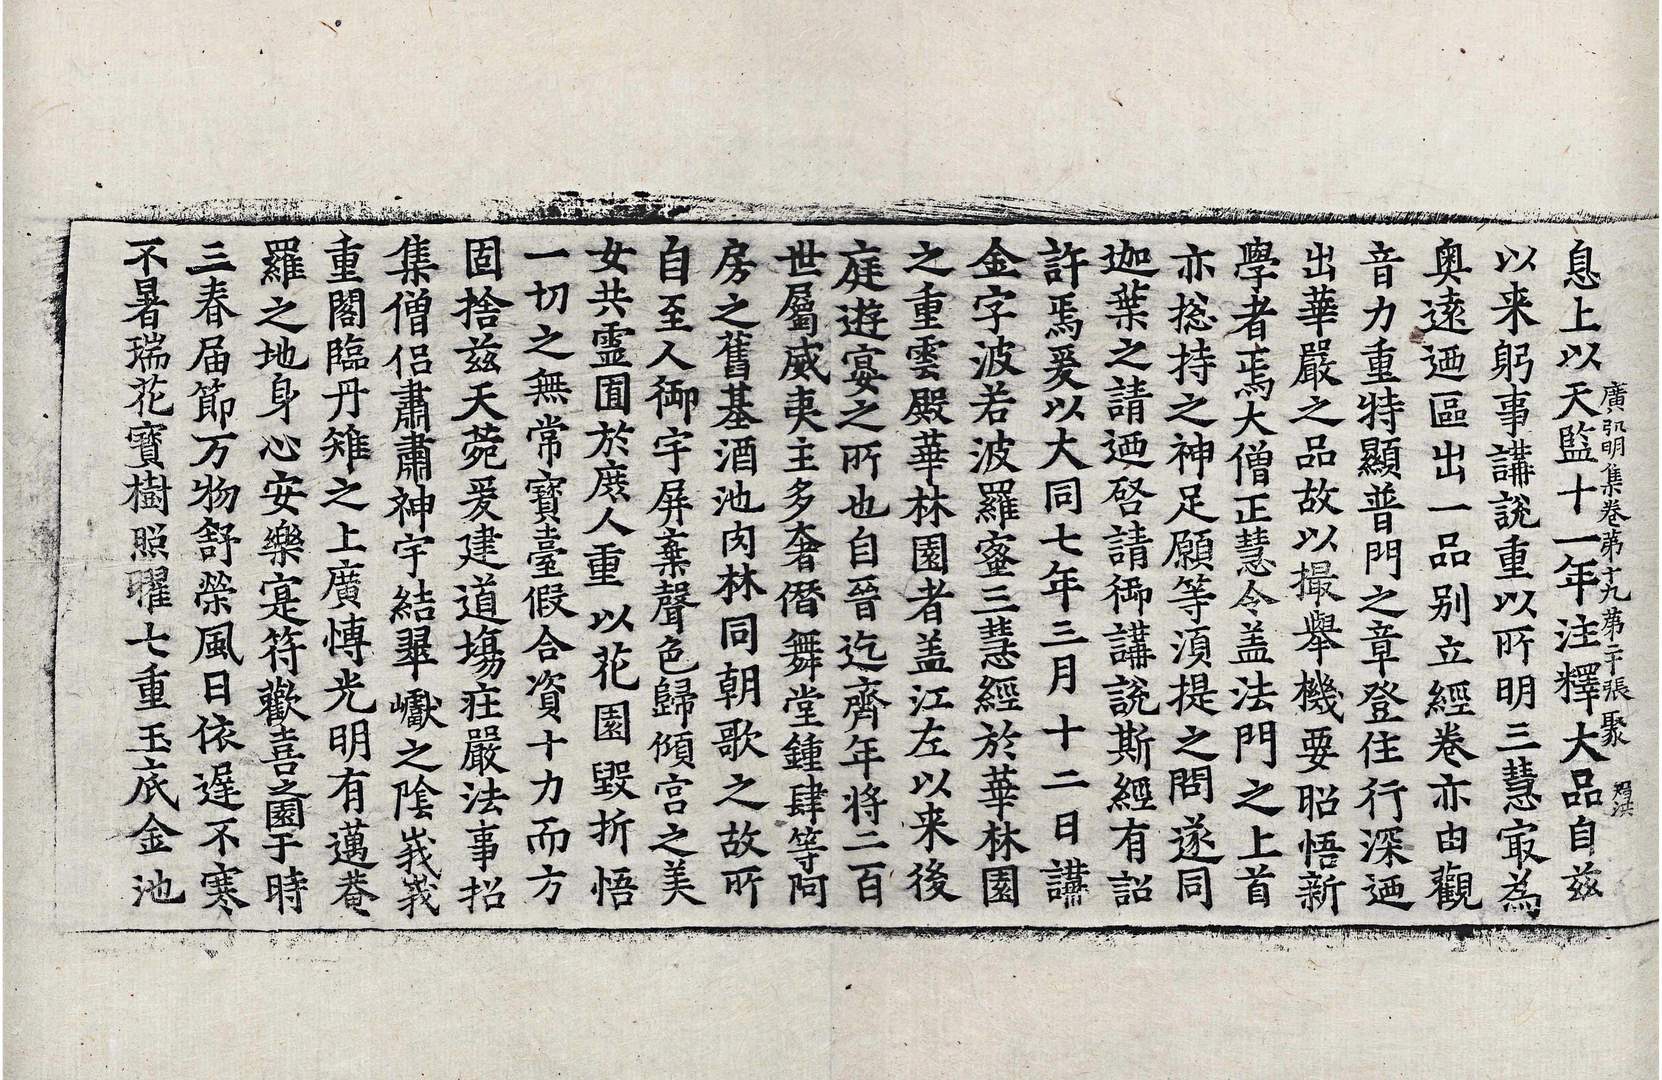 息上以天監十一年注釋大品自兹
廣弘明集卷第十九 第二十張 聚
以来躬事講說重以所明三慧㝡為
奥遠迺區出一品别立經卷亦由觀
音力重特顯普門之章登住行深迺
出華嚴之品故以撮舉機要昭悟新
學者焉大僧正慧令盖法門之上首
亦揔持之神足願等須提之問遂同
迦葉之請迺啓請御講說斯經有詔
許焉爰以大同七年三月十二日講
金字波若波羅蜜三慧經於華林園
之重雲殿華林園者盖江左以来後
庭遊宴之所也自晉迄齊年将二百
世屬威夷主多奢僭舞堂鍾肆等阿
房之舊基酒池肉林同朝歌之故所
自至人御宇屏棄聲色歸傾宫之美
女共霊囿於庶人重以花園毀折悟
一切之無常寶臺假合資十力而方
固捨兹天苑爰建道塲莊嚴法事招
集僧侣肅肅神宇結翠巘之陰峩峩
重閣臨丹雉之上廣博光明有邁菴
羅之地身心安樂寔符歡喜之園于時
三春届節万物舒榮風日依遲不寒
不暑瑞花寶樹照曜七重玉底金池